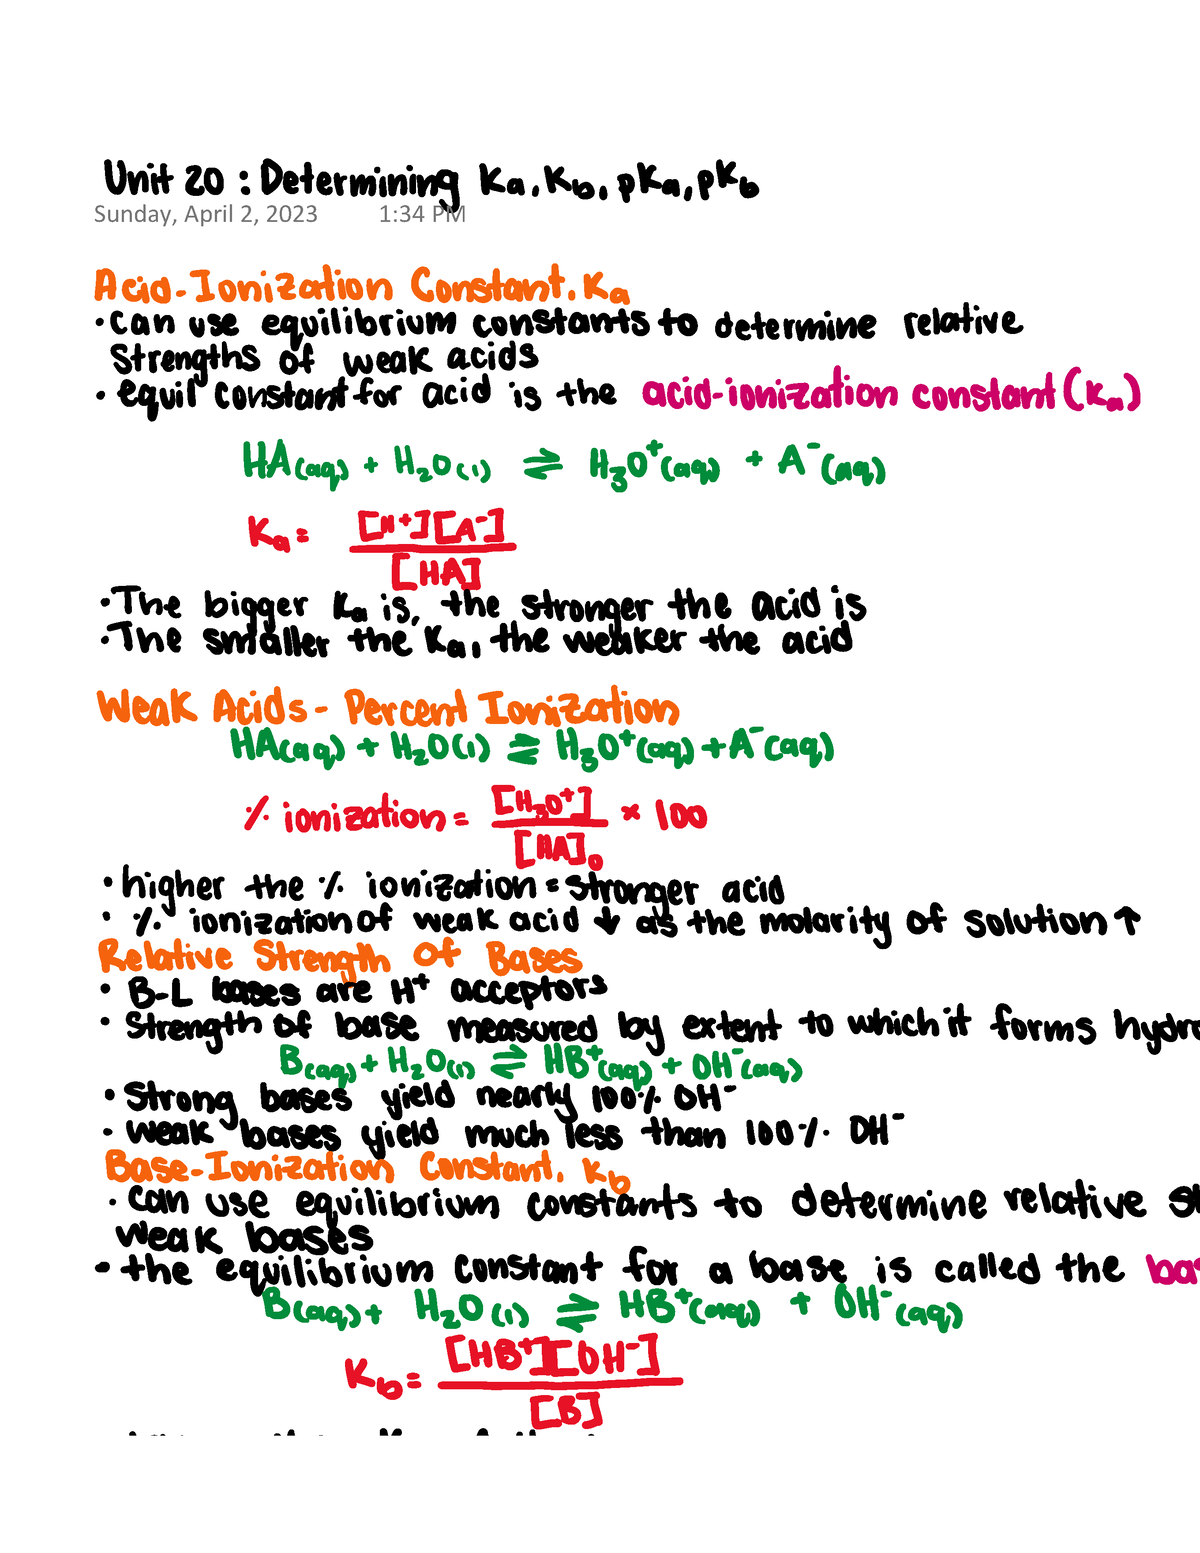 Unit 20 : Determining Ka, Kb, pKa, pKb
Sunday, April 2, 2023 1:34 PM
Acid-Ionization Constant, Ka
• can use equilibrium constants to determine relative
strengths of weak acids
• equil constant for acid is the acid-ionization constant (Ka)
HA(aq) + H₂O(l) ⇌ H₃O⁺(aq) + A⁻(aq)
Ka = [H⁺][A⁻]
[HA]
• The bigger Ka is, the stronger the acid is
• The smaller the Ka, the weaker the acid
Weak Acids - Percent Ionization
HA(aq) + H₂O(l) ⇌ H₃O⁺(aq) + A⁻(aq)
% ionization = [H₃O⁺] × 100
[HA]₀
• higher the % ionization = stronger acid
• % ionization of weak acid ↓ as the molarity of solution ↑
Relative Strength Of Bases
• B-L bases are H⁺ acceptors
• Strength of base measured by extent to which it forms hydro
B(aq) + H₂O(l) ⇌ HB⁺(aq) + OH⁻(aq)
• Strong bases yield nearly 100% OH⁻
• weak bases yield much less than 100% OH⁻
Base-Ionization Constant, Kb
• can use equilibrium constants to determine relative st
weak bases
- the equilibrium constant for a base is called the bas
B(aq) + H₂O(l) ⇌ HB⁺(aq) + OH⁻(aq)
Kb = [HB⁺][OH⁻]
[B]